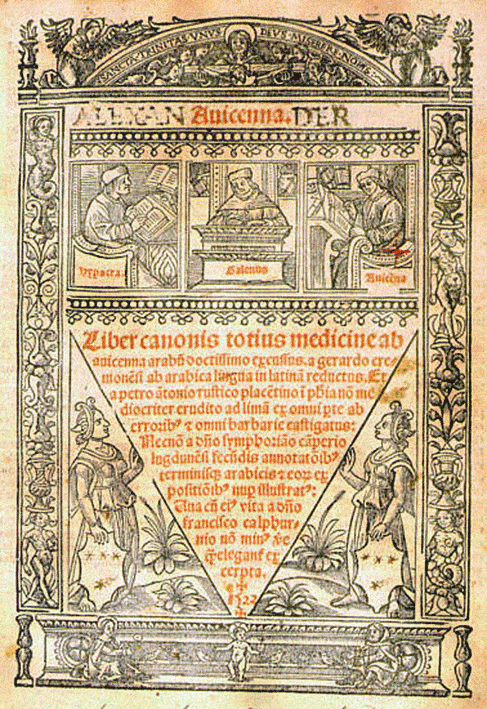 SANCTA·TRINITAS·VNVS DEUS·MISERERE·NOBIS·
ALEXAN Auicenna. DER
Yypocra.
Galenus
Auicēna
Liber canonis totius medicine ab
auicenna arabū doctissimo excussus. a gerardo cre-
monēsi ab arabica lingua in latinā reductus. Et
a petro ātonio rustico placētino ī phīa nō me
diocriter erudito ad limā ex omni pte ab
errorib⁹ ⁊ omni barbarie castigatus:
Necnō a dn̄o symphoriāo cāperio
lugdunēsi fecūdis annotatōib⁹
terminisq; arabicis ⁊ eorū ex
positiōib⁹ nup illustrat⁹:
Una cū ei⁹ vita a dn̄o
francisco calphur-
nio nō min⁹ ve
q̄ eleganť ex
cerpta.
1522